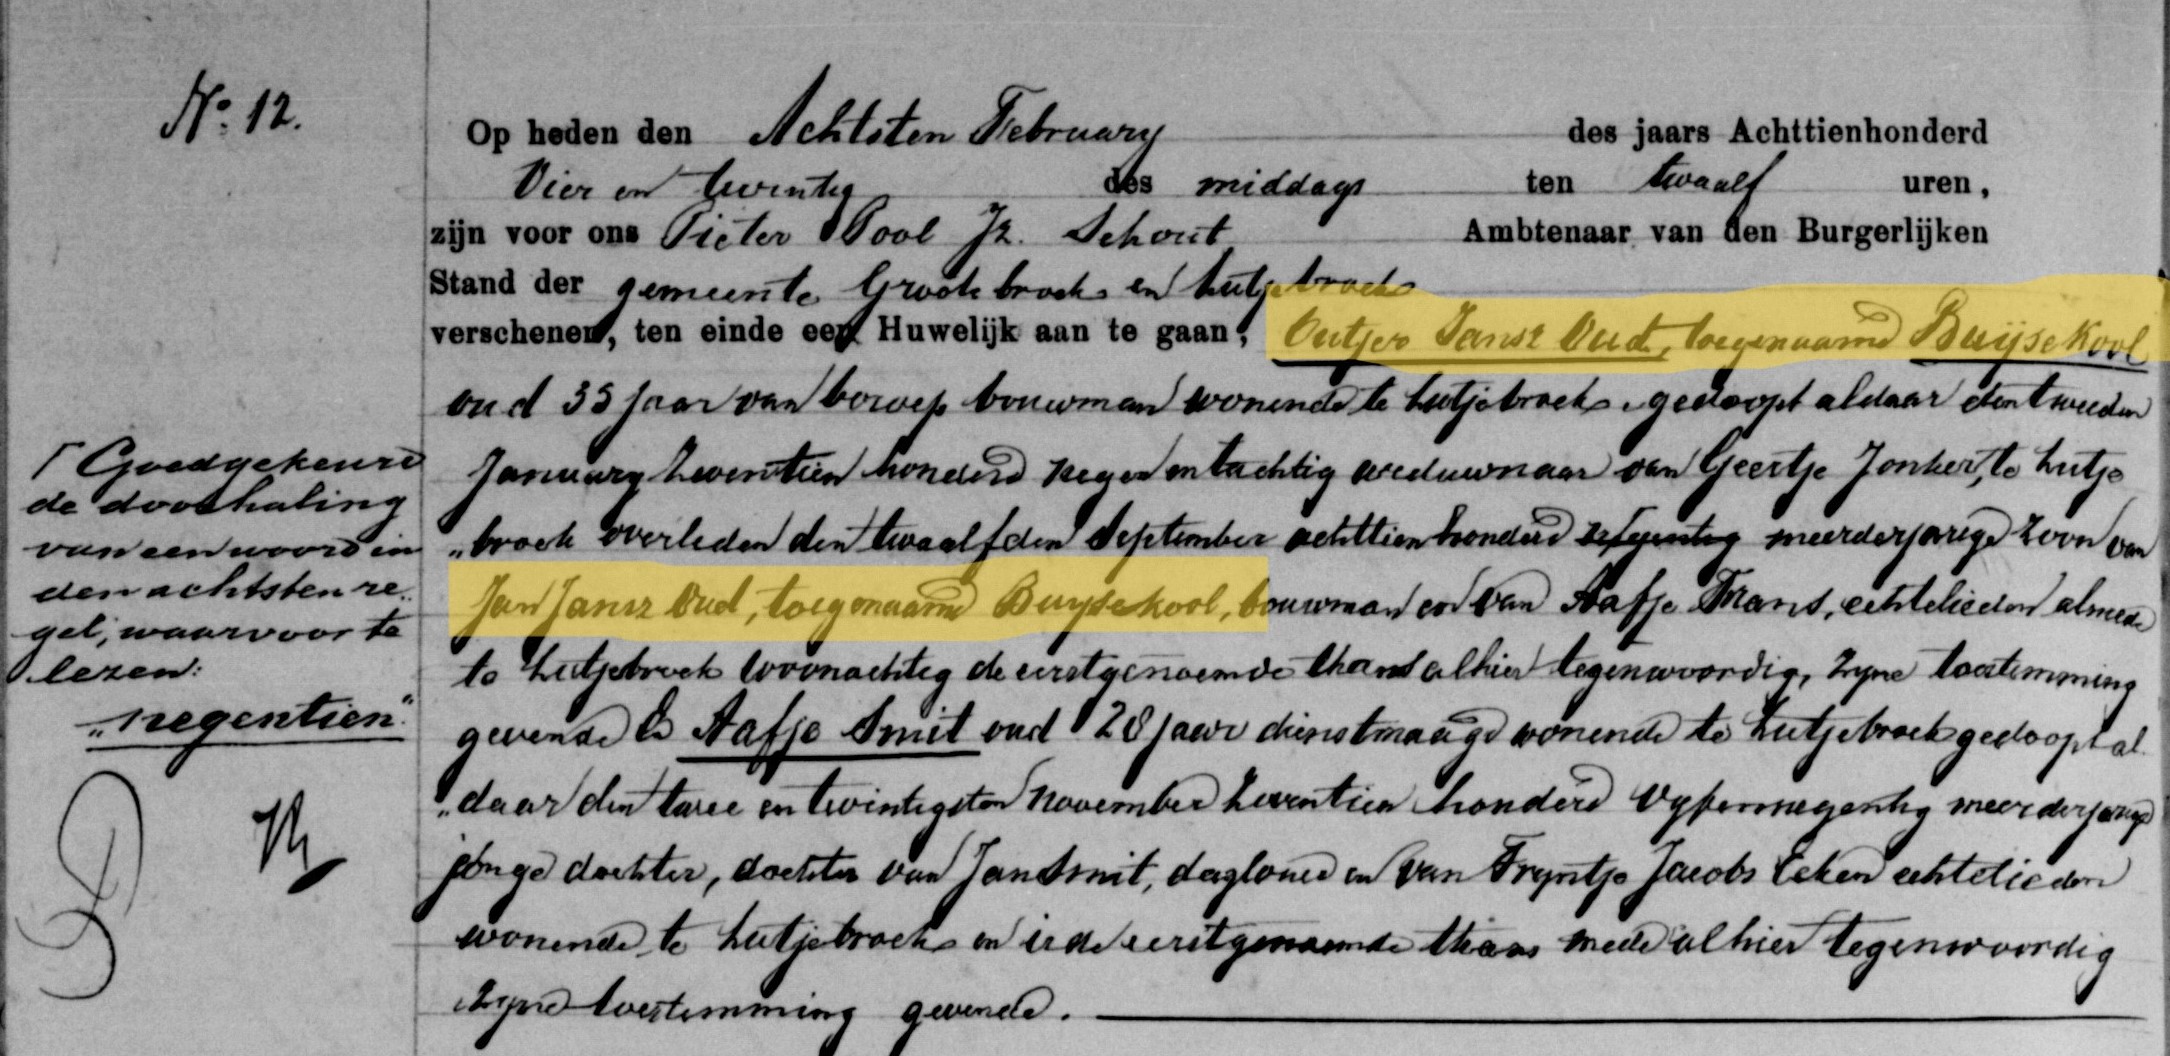 No. 12.
Op heden den Achtsten February des jaars Achttienhonderd
Vier en twentig des middags ten twaalf uren,
zijn voor ons Pieter Pool Jz. Schout Ambtenaar van den Burgerlijken
Stand der gemeente Grootebroek en Lutjebroek
verschenen, ten einde een Huwelijk aan te gaan; Outjer Jansz Oud, toegenaamd Buijsekool
oud 35 jaar van beroep bouwman wonende te Lutjebroek, gedoopt aldaar den tweeden
January Zeventien honderd negen en tachtig weduwnaar van Geertje Jonker, te Lutje
„broek overleden den twaalfden September achttien honderd meerderjarige zoon van
Jan Jansz Oud, toegenaamd Buysekool, bouwman en van Aafje Frans, echtelieden almede
te Lutjebroek woonachtig de eerstgenoemde thans alhier tegenwoordig, zyne toestemming
gevende & Aafje Smit oud 28 jaar dienstmaagd wonende te Lutjebroek gedoopt al
„daar den twee en twintigsten November Zeventien honderd Vyfennegentig meerderjarige
jonge dochter, dochter van Jan Smit, dagloner en van Tryntje Jacobs echtelieden
wonende te Lutjebroek en is de eerstgenoemde thans mede alhier tegenwoordig
zyne toestemming gevende.
Γ Goedgekeurd
de doorhaling
van een woord in
den achtsten re-
gel, waarvoor te
lezen:
„negentien"